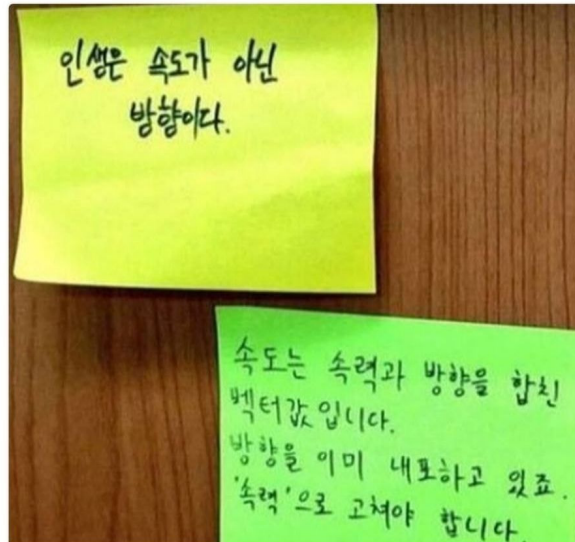 인생은 속도가 아닌
방향이다.
속도는 속력과 방향을 합친
벡터값입니다.
방향을 이미 내포하고 있죠.
'속력'으로 고쳐야 합니다.